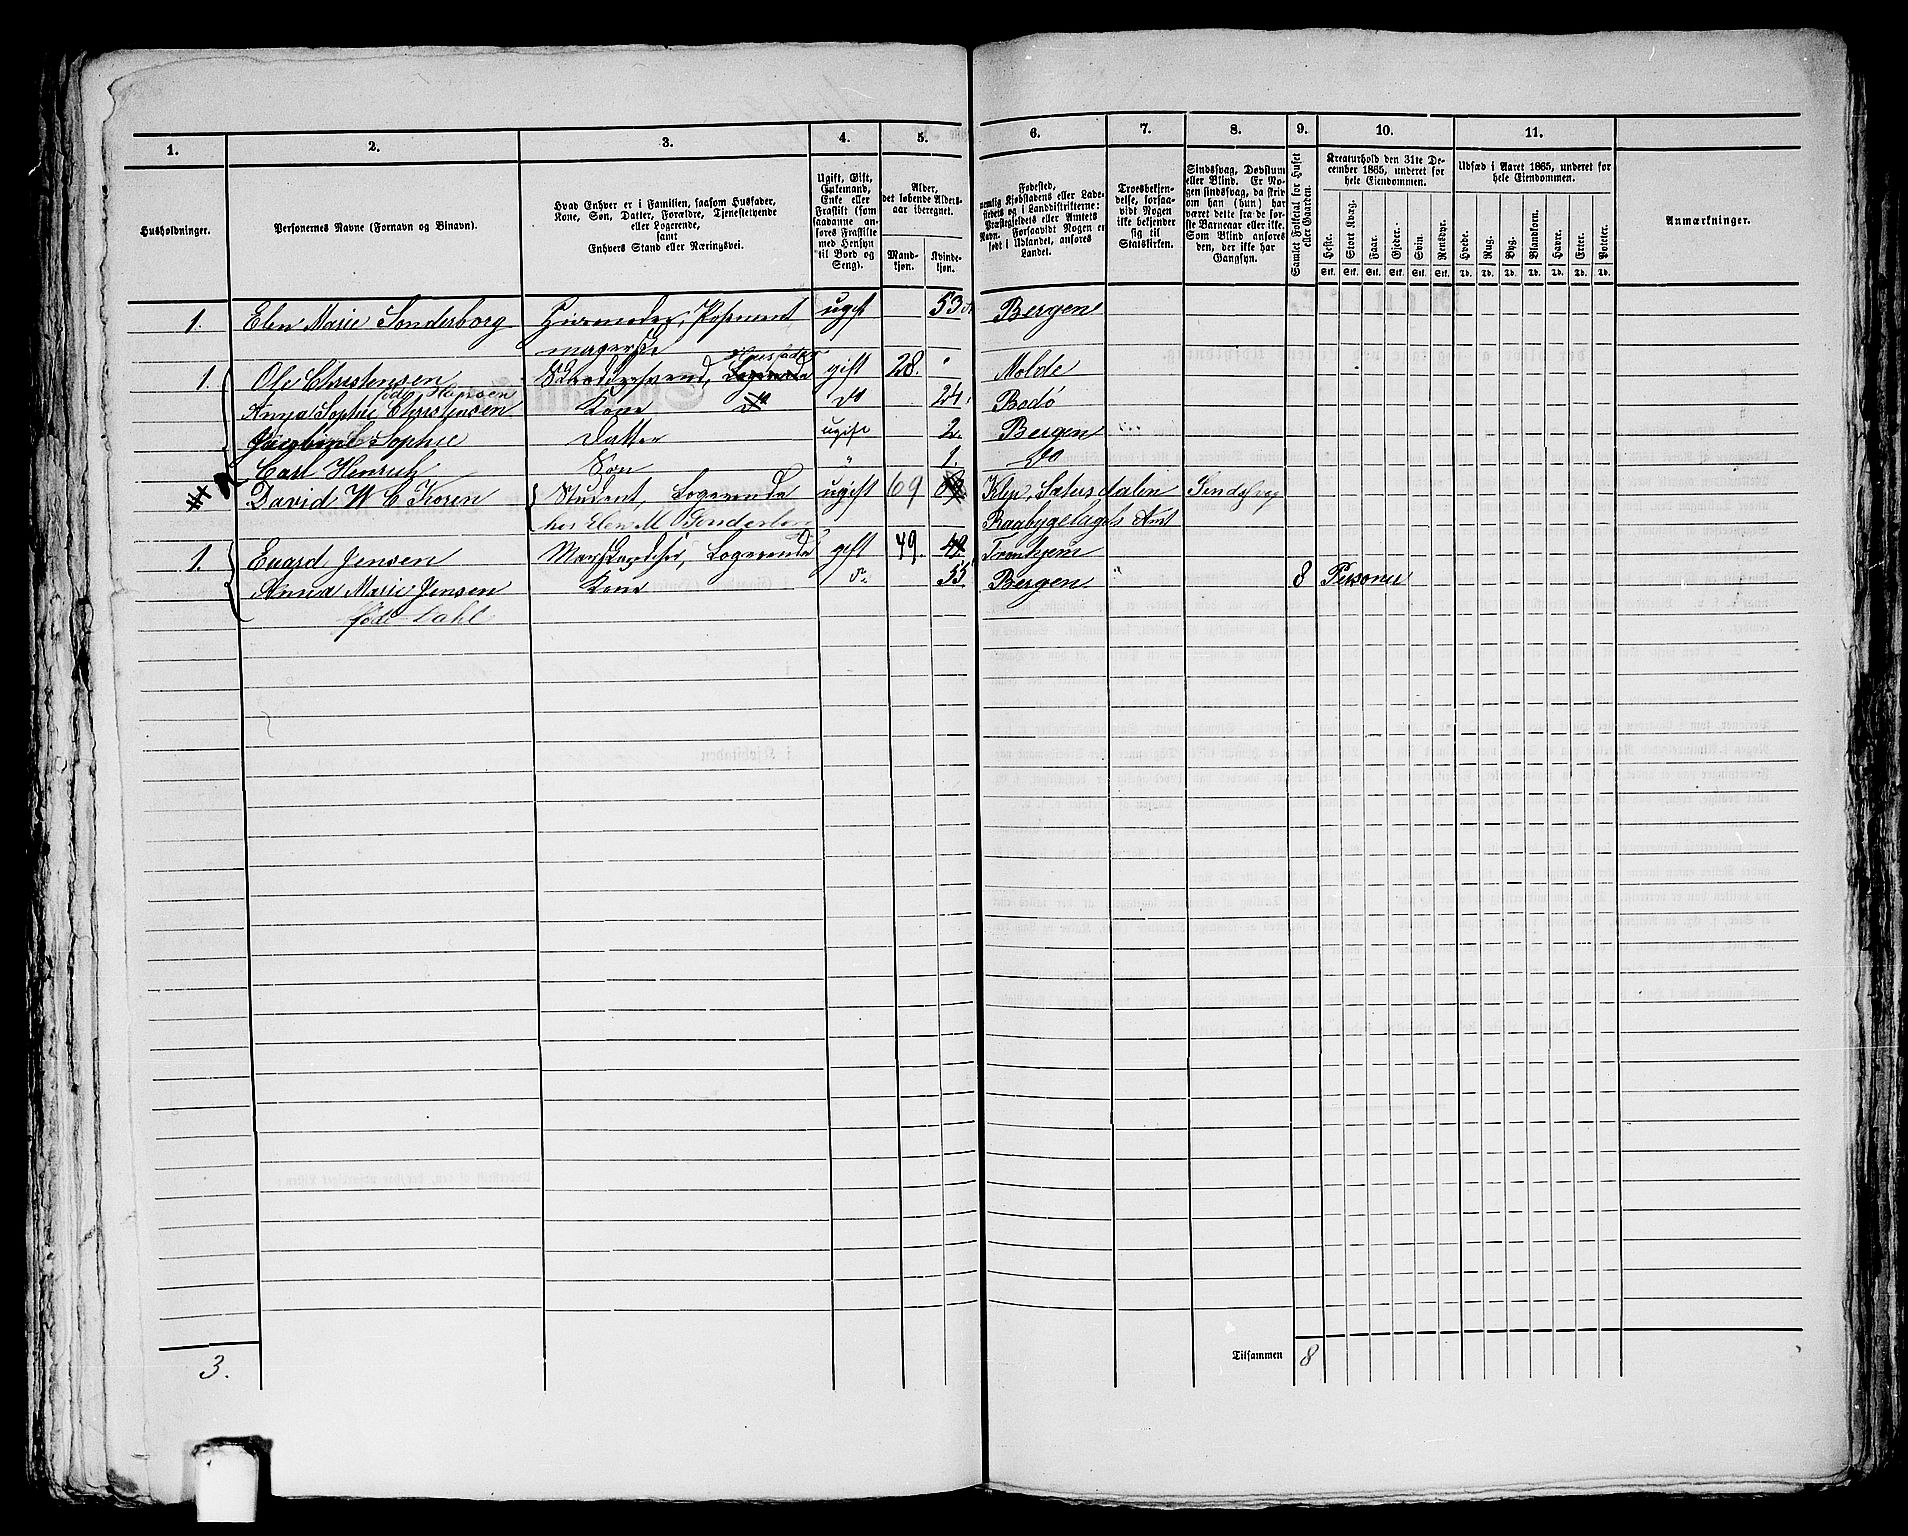 1. 2. 3. 4. 5. 6. 7. 8. 9. 10. 11.
Husholdninger.
Personernes Navne (Fornavn og Binavn).
Hvad Enhver er i Familien, saasom Husfader,
Kone, Søn, Datter, Forældre, Tjenestetyende
eller Logerende,
samt
Enhvers Stand eller Næringsvei.
Ugift, Gift,
Enkemand,
Enke eller
Fraskilt (som
saadanne an-
føres Fraskilte
med Hensyn
til Bord og
Seng).
Alder,
det løbende Alders-
aar iberegnet.
Mand-
kjøn.
Kvinde-
kjøn.
Fødested,
nemlig Kjøbstadens eller Lade-
stedets og i Landdistrikterne:
Præstegjeldets eller Amtets
Navn. Forsaavidt Nogen er
født i Udlandet, anføres
Landet.
Troesbekjen-
delse, forsaa-
vidt Nogen
ikke bekjender
sig til
Statskirken.
Sindssvag, Døvstum
eller Blind. Er No-
gen sindssvag, da skriv
om han (hun) har
været dette fra de før-
ste Barneaar eller ikke.
Som Blind anføres
den, der ikke har
Gangsyn.
Samlet Folketal for Huset
eller Gaarden.
Kreaturhold den 31te De-
cember 1865, underet for
hele Eiendommen.
Heste. Stort Kvæg. Faar. Gjeder. Svin. Rensdyr.
Stk. Stk. Stk. Stk. Stk. Stk.
Udsæd i Aaret 1865, underet for
hele Eiendommen.
Hvede. Rug. Byg. Blandkorn. Havre. Erter. Poteter.
Td. Td. Td. Td. Td. Td. Td.
Anmærkninger.
1. Elen Marie Sonderborg ugift 53 Bergen
1. Ole Christensen gift 28. " Molde
Husfader
Anna Sophie Christensen Kone do 24. Bodø
Sophie Datter ugift 2. Bergen
Carl Henrich Søn " 1. Do
David W C Koren Student, Logerende ugift 69 Sindssvag
hos Elen M Sonderborg Raabygelagets Amt
1. Evard Jensen Logerende gift 49. 49. Tronhjem
Anna Marie Jensen Kone do 55 Bergen " 8 Personer
fød Dahl
3. Tilsammen 8